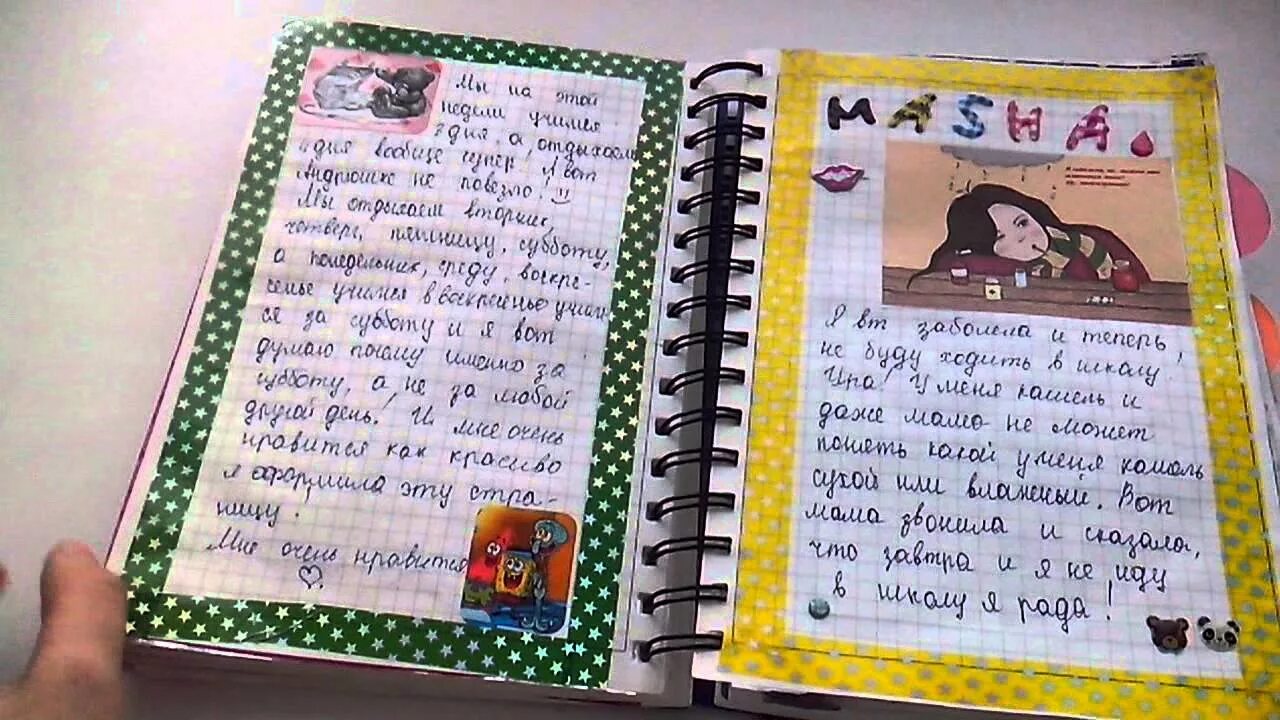 Мы на этой
недели учимся
3 дня, а отдыхаем
4 дня вообще супер! А вот
Андрюшке не повезло!
Мы отдыхаем вторник,
четверг, пятницу, субботу,
а понедельник, среду, воскре-
сенье учимся в воскресенье учим-
ся за субботу и я вот
думаю почему именно за
субботу, а не за любой
другой день! И мне очень
нравится как красиво
я оформила эту стра-
ницу.
Мне очень нравится
MASHA
Я вт заболела и теперь
не буду ходить в школу!
Ура! У меня кашель и
даже мама не может
понять какой у меня кашель
сухой или влажный. Вот
мама звонила и сказала,
что завтра и я не иду
в школу я рада!